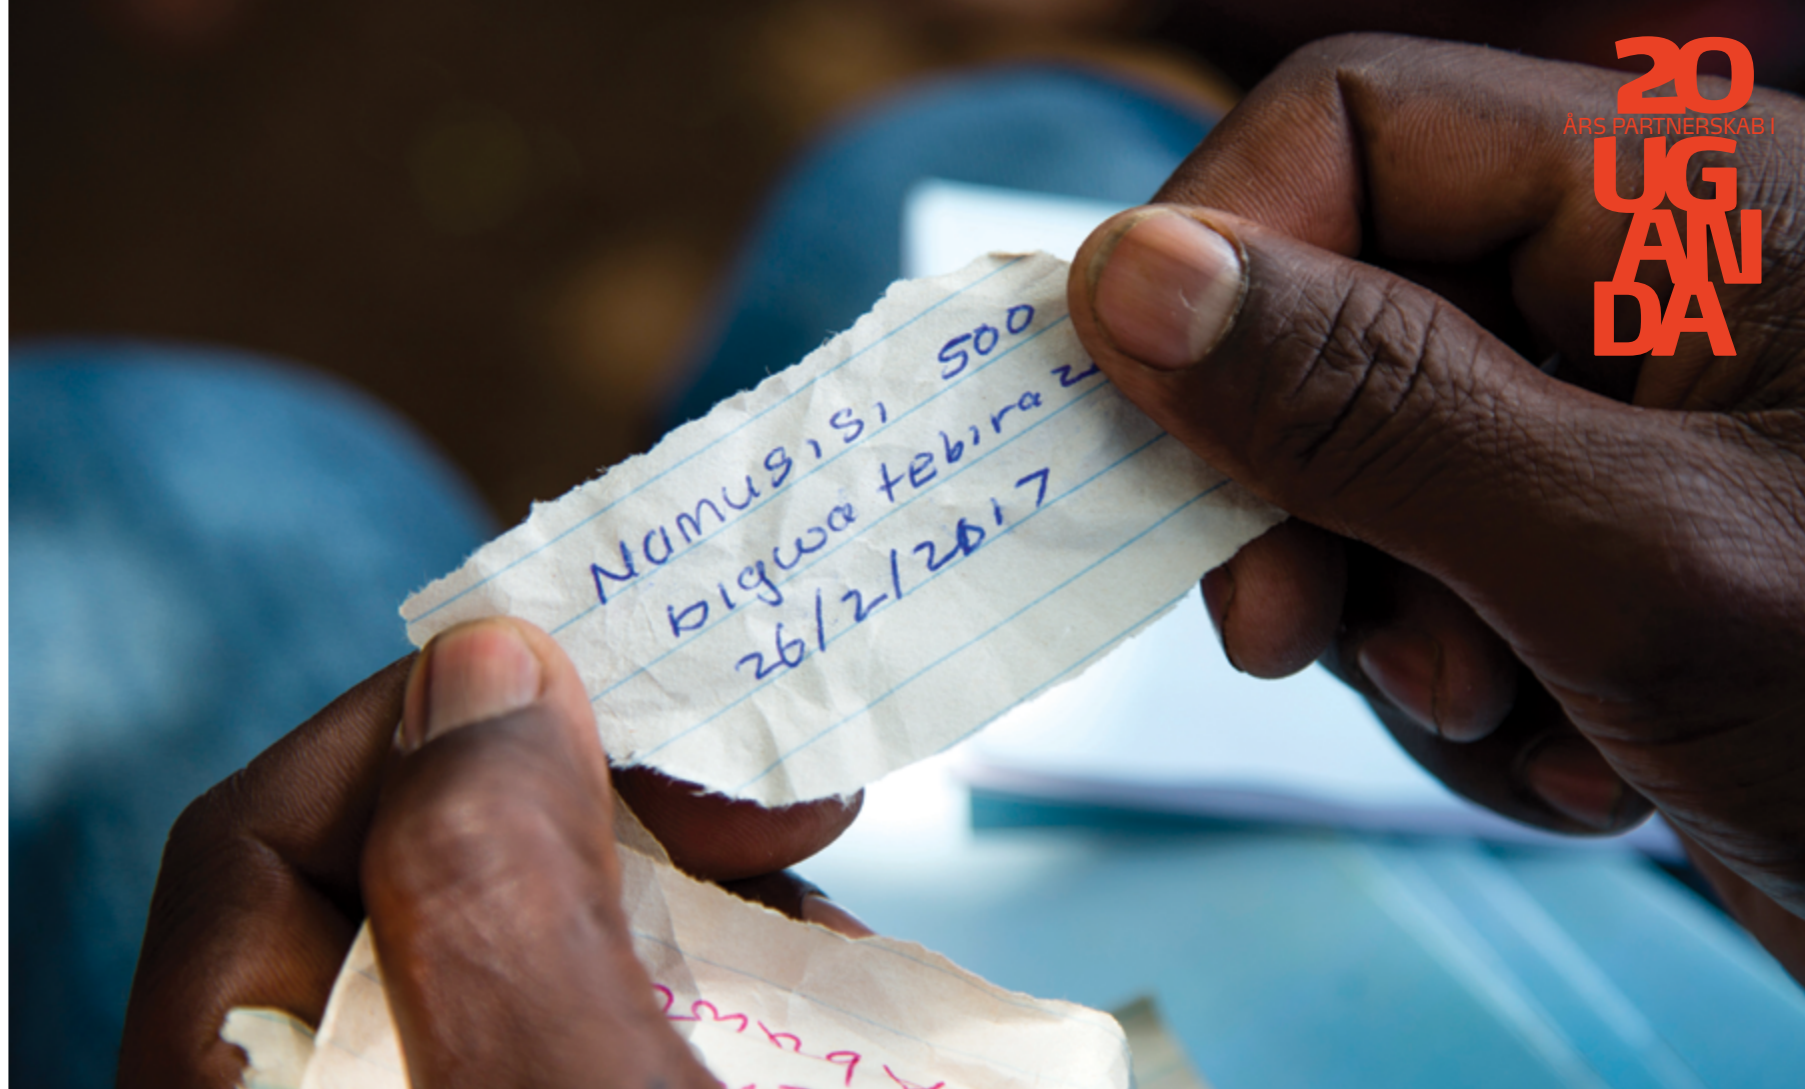 20
ÅRS PARTNERSKAB I
UG
AN
DA
Namusisi 500
bigwa tebiraz
26/2/2017